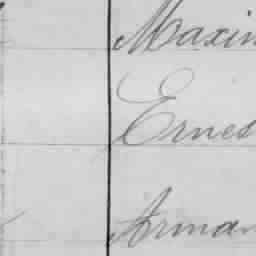 Maxim
Ernes
Arman